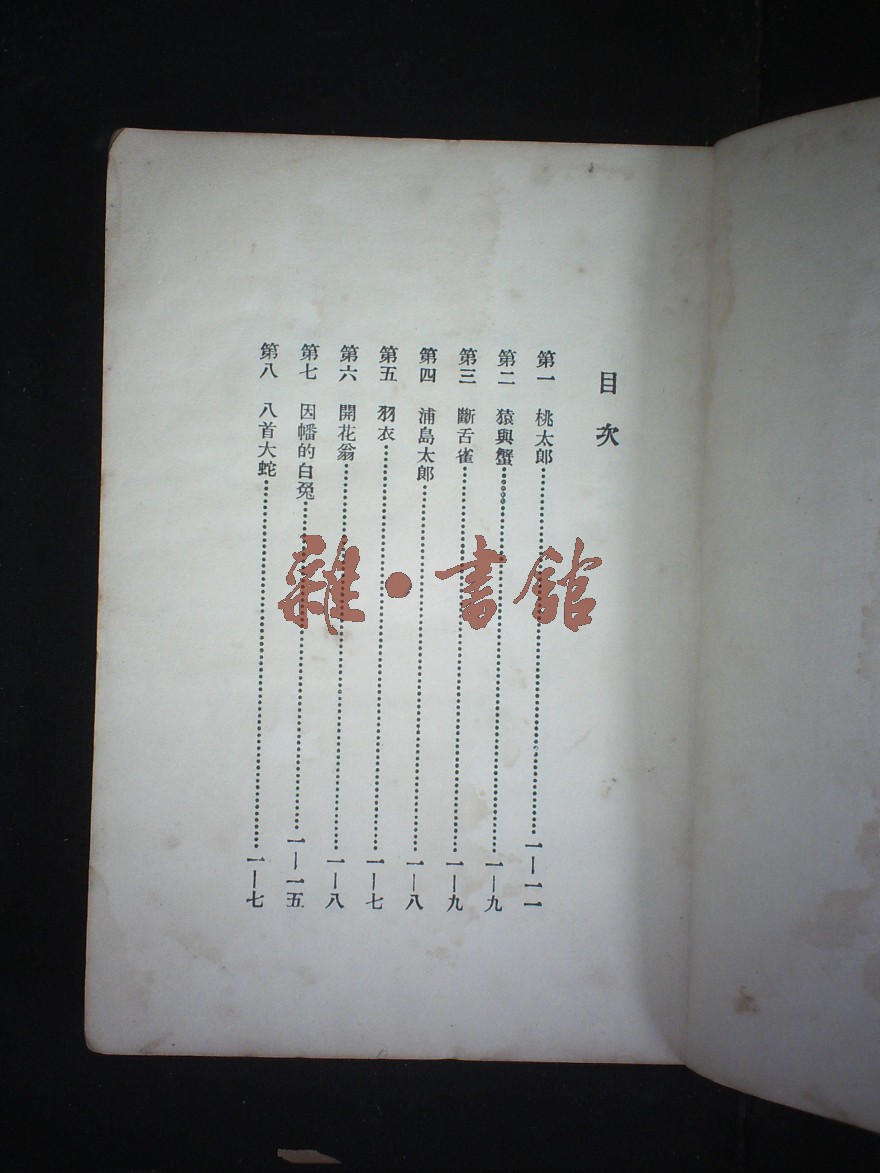 目次
第一 桃太郎……一—一一
第二 猿與蟹……一—九
第三 斷舌雀……一—九
第四 浦島太郎……一—八
第五 羽衣……一—七
第六 開花翁……一—八
第七 因幡的白兔……一—一五
第八 八首大蛇……一—七
雜·書館